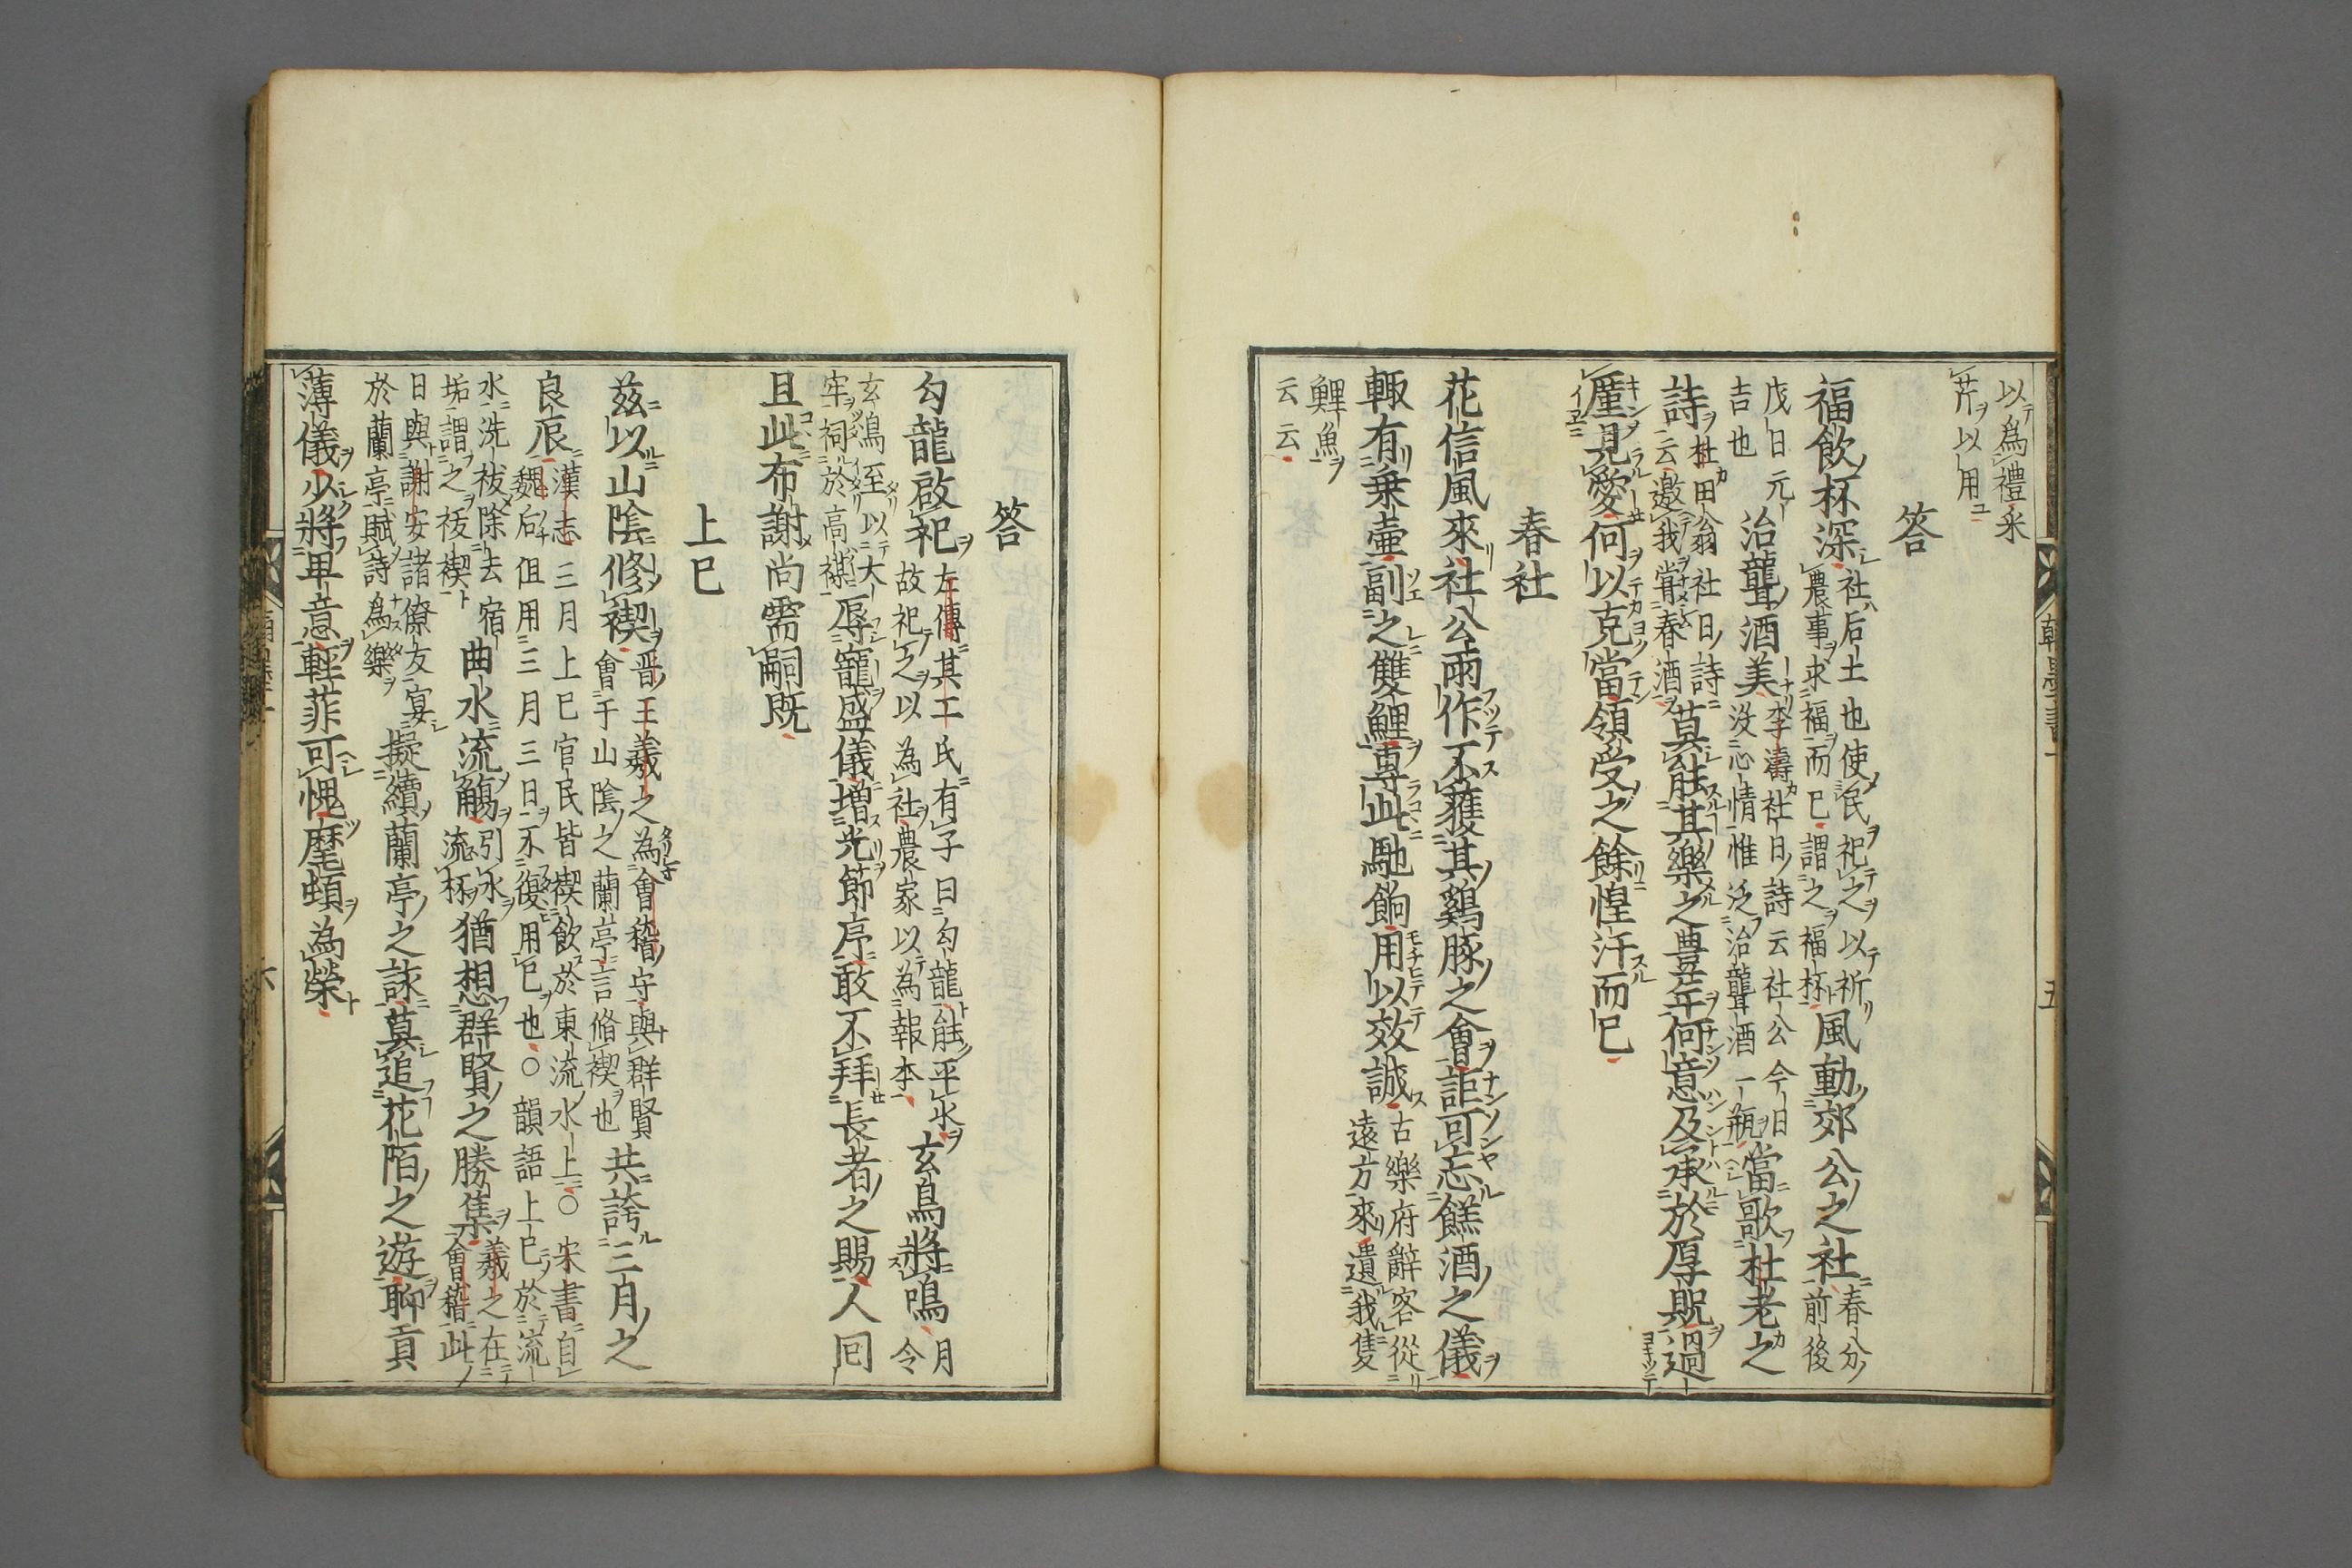 以為禮采
芹以用
答
福飲杯深
社后土也使民祀之以祈
農事求福而已謂之福杯
風動郊公之社
春分
前後
戊日元
吉也
治聾酒美
李濤社日詩云社公今日
沒心情惟泛治聾酒一瓶
當歌杜老之
詩
杜田翁社日詩
云邀我甞春酒
莫能其樂之豊年何意及承於厚貺廻
厪見愛何以克當領受之餘惶汗而已
春社
花信風來社公雨作不獲其鷄豚之會詎可忘餻酒之儀
輙有乗壷副之雙鯉専此馳餉用以效誠
古樂府辭客從
遠方來遺我隻
鯉魚
云云
五
答
勾龍啟祀
左傳其工氏有子曰勾龍能平水
故祀之以為社農家以為報本
玄鳥將鳴
月
令
玄鳥至以大
牢祠於高禖
辱寵盛儀増光節序敢不拜長者之賜人回
且此布謝尚需嗣既
上巳
兹以山陰修禊
晋王羲之為會稽守與群賢
會于山陰之蘭亭言脩禊也
共誇三月之
良辰
漢志三月上巳官民皆禊飲於東流水上○宋書自
魏后但用三月三日不復用巳也○韻語上巳於流
水洗祓除去宿
垢謂之祓禊
曲水流觴
引水
流杯
猶想群賢之勝集
羲之在
會稽此
日與謝安諸僚友宴
於蘭亭賦詩為樂
擬續蘭亭之詠莫追花陌之遊聊貢
薄儀少將卑意輕菲可愧麾頓為榮
六